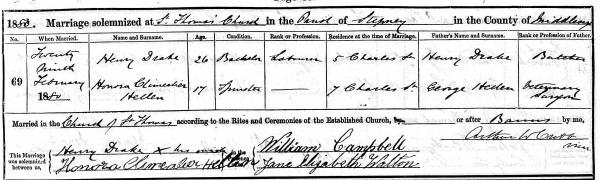 1880. Marriage solemnized at St Thomas Church in the Parish of Stepney in the County of Middlesex
No. When Married. Name and Surname. Age. Condition. Rank or Profession. Residence at the time of Marriage. Father's Name and Surname. Rank or Profession of Father.
69 Twenty Ninth February 1880 Henry Drake 26 Bachelor Labourer 5 Charles St Henry Drake Butcher
Honora Hellen 17 Spinster — 7 Charles St George Hellen Veterinary Surgeon
Married in the Church of St Thomas according to the Rites and Ceremonies of the Established Church, or after Banns by me,
This Marriage was solemnized between us, Henry Drake X his mark in the Presence of us, William Campbell Arthur W
Honora Jane Elizabeth Walton